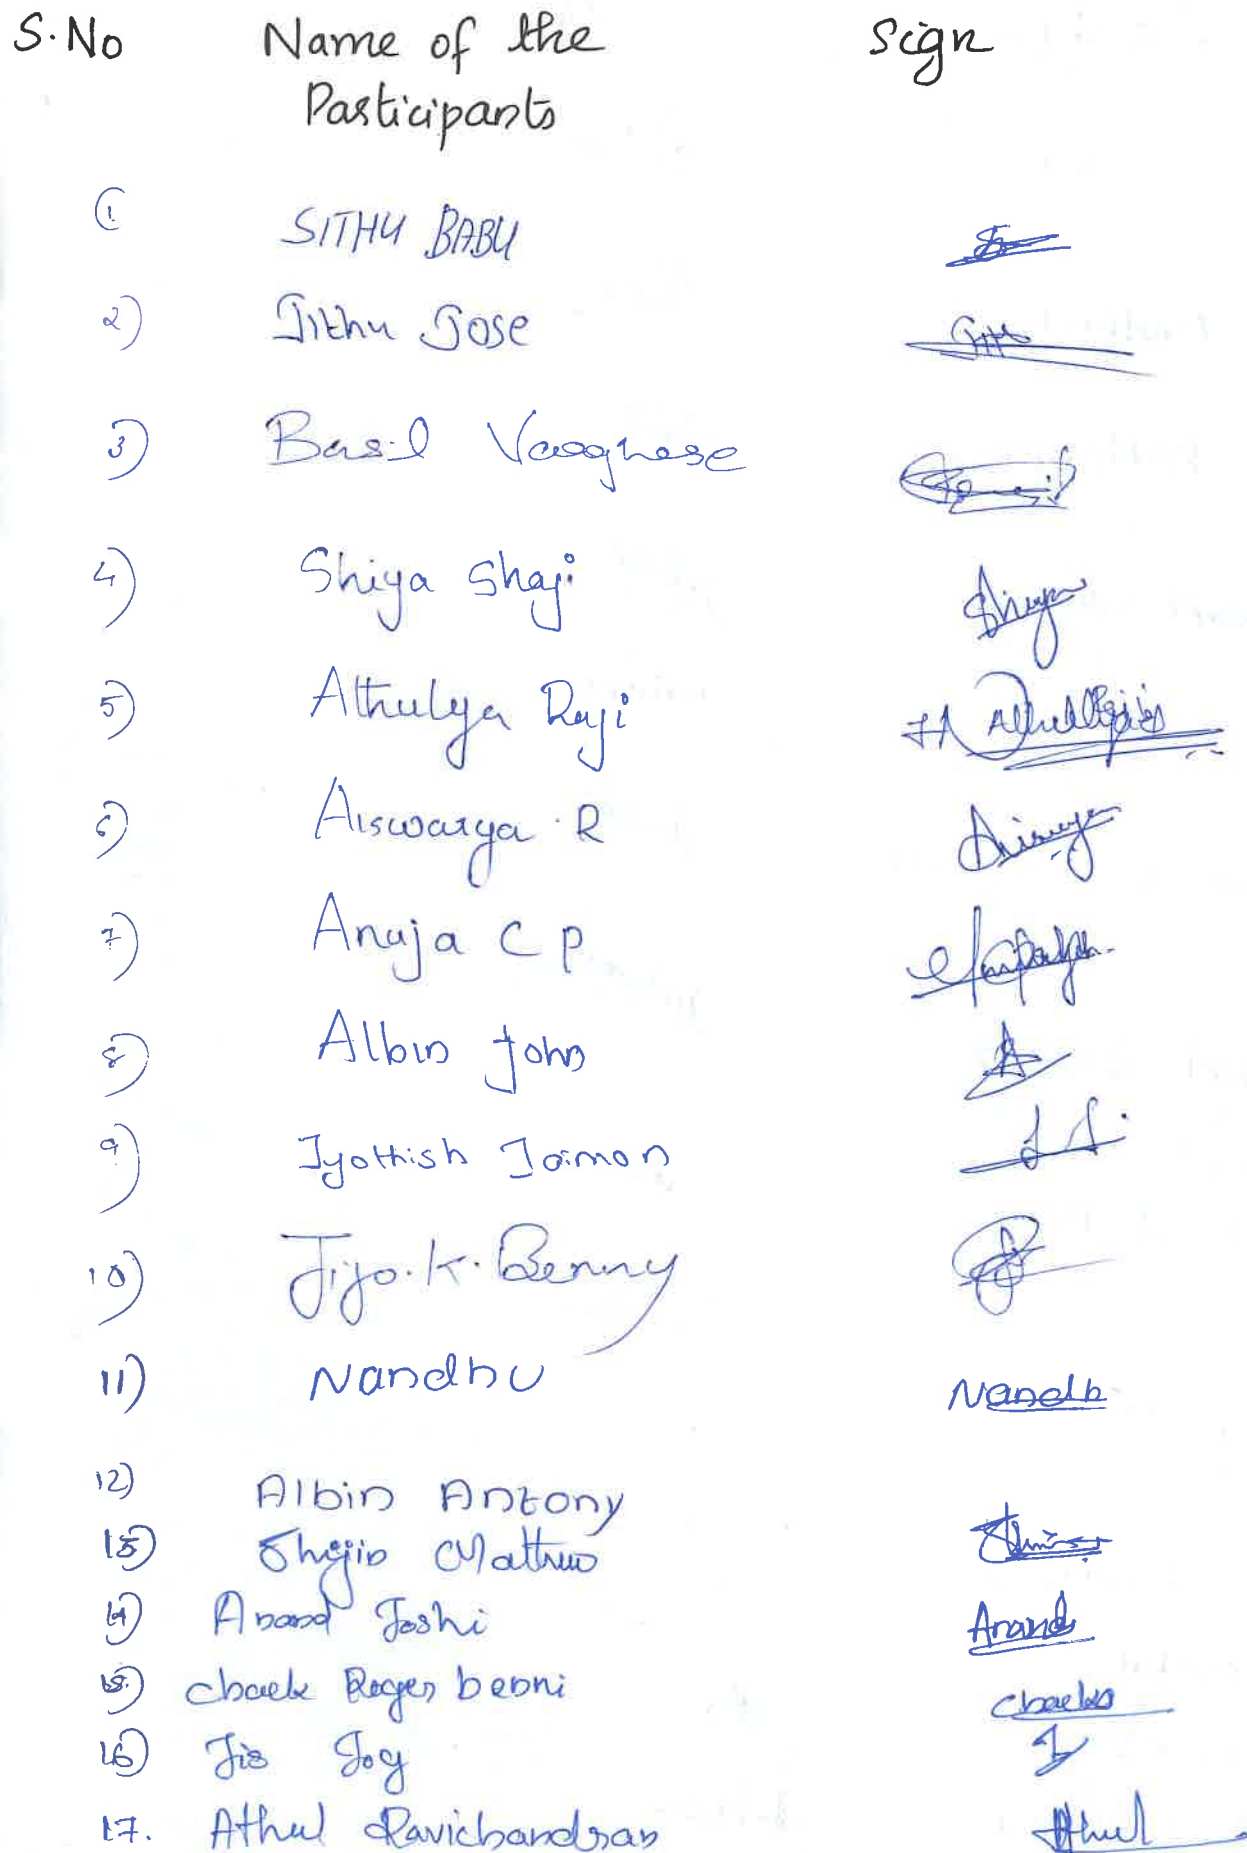 S.No Name of the Sign
Participants
1 SITHU BABU
2) Jithu Jose
3) Basil Varghese
4) Shiya Shaji Shiya
5) Athulya Raji
6) Aiswarya . R
7) Anuja C P
8) Albin John
9) Jyothish Jaimon
10) Jijo. K. Benny
11) Nandhu Nandh
12) Albin Antony
13) Shijin Mathew
14) Anand Joshi Anand
15) Chack Roger benni Chacks
16) Jis Joy
17. Athul Ravichandran Athul